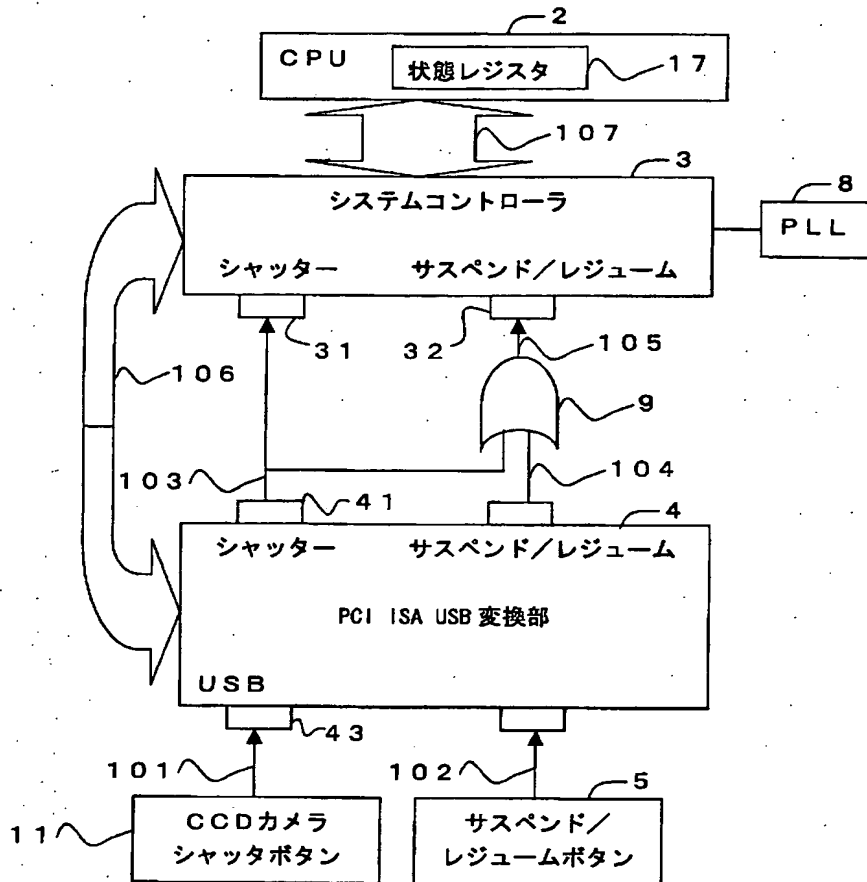 2
CPU
状態レジスタ
17
107
3
システムコントローラ
8
PLL
シャッター
サスペンド/レジューム
31
32
105
106
9
103
104
41
4
シャッター
サスペンド/レジューム
PCI ISA USB変換部
USB
43
101
102
5
11
CCDカメラ
シャッタボタン
サスペンド/
レジュームボタン